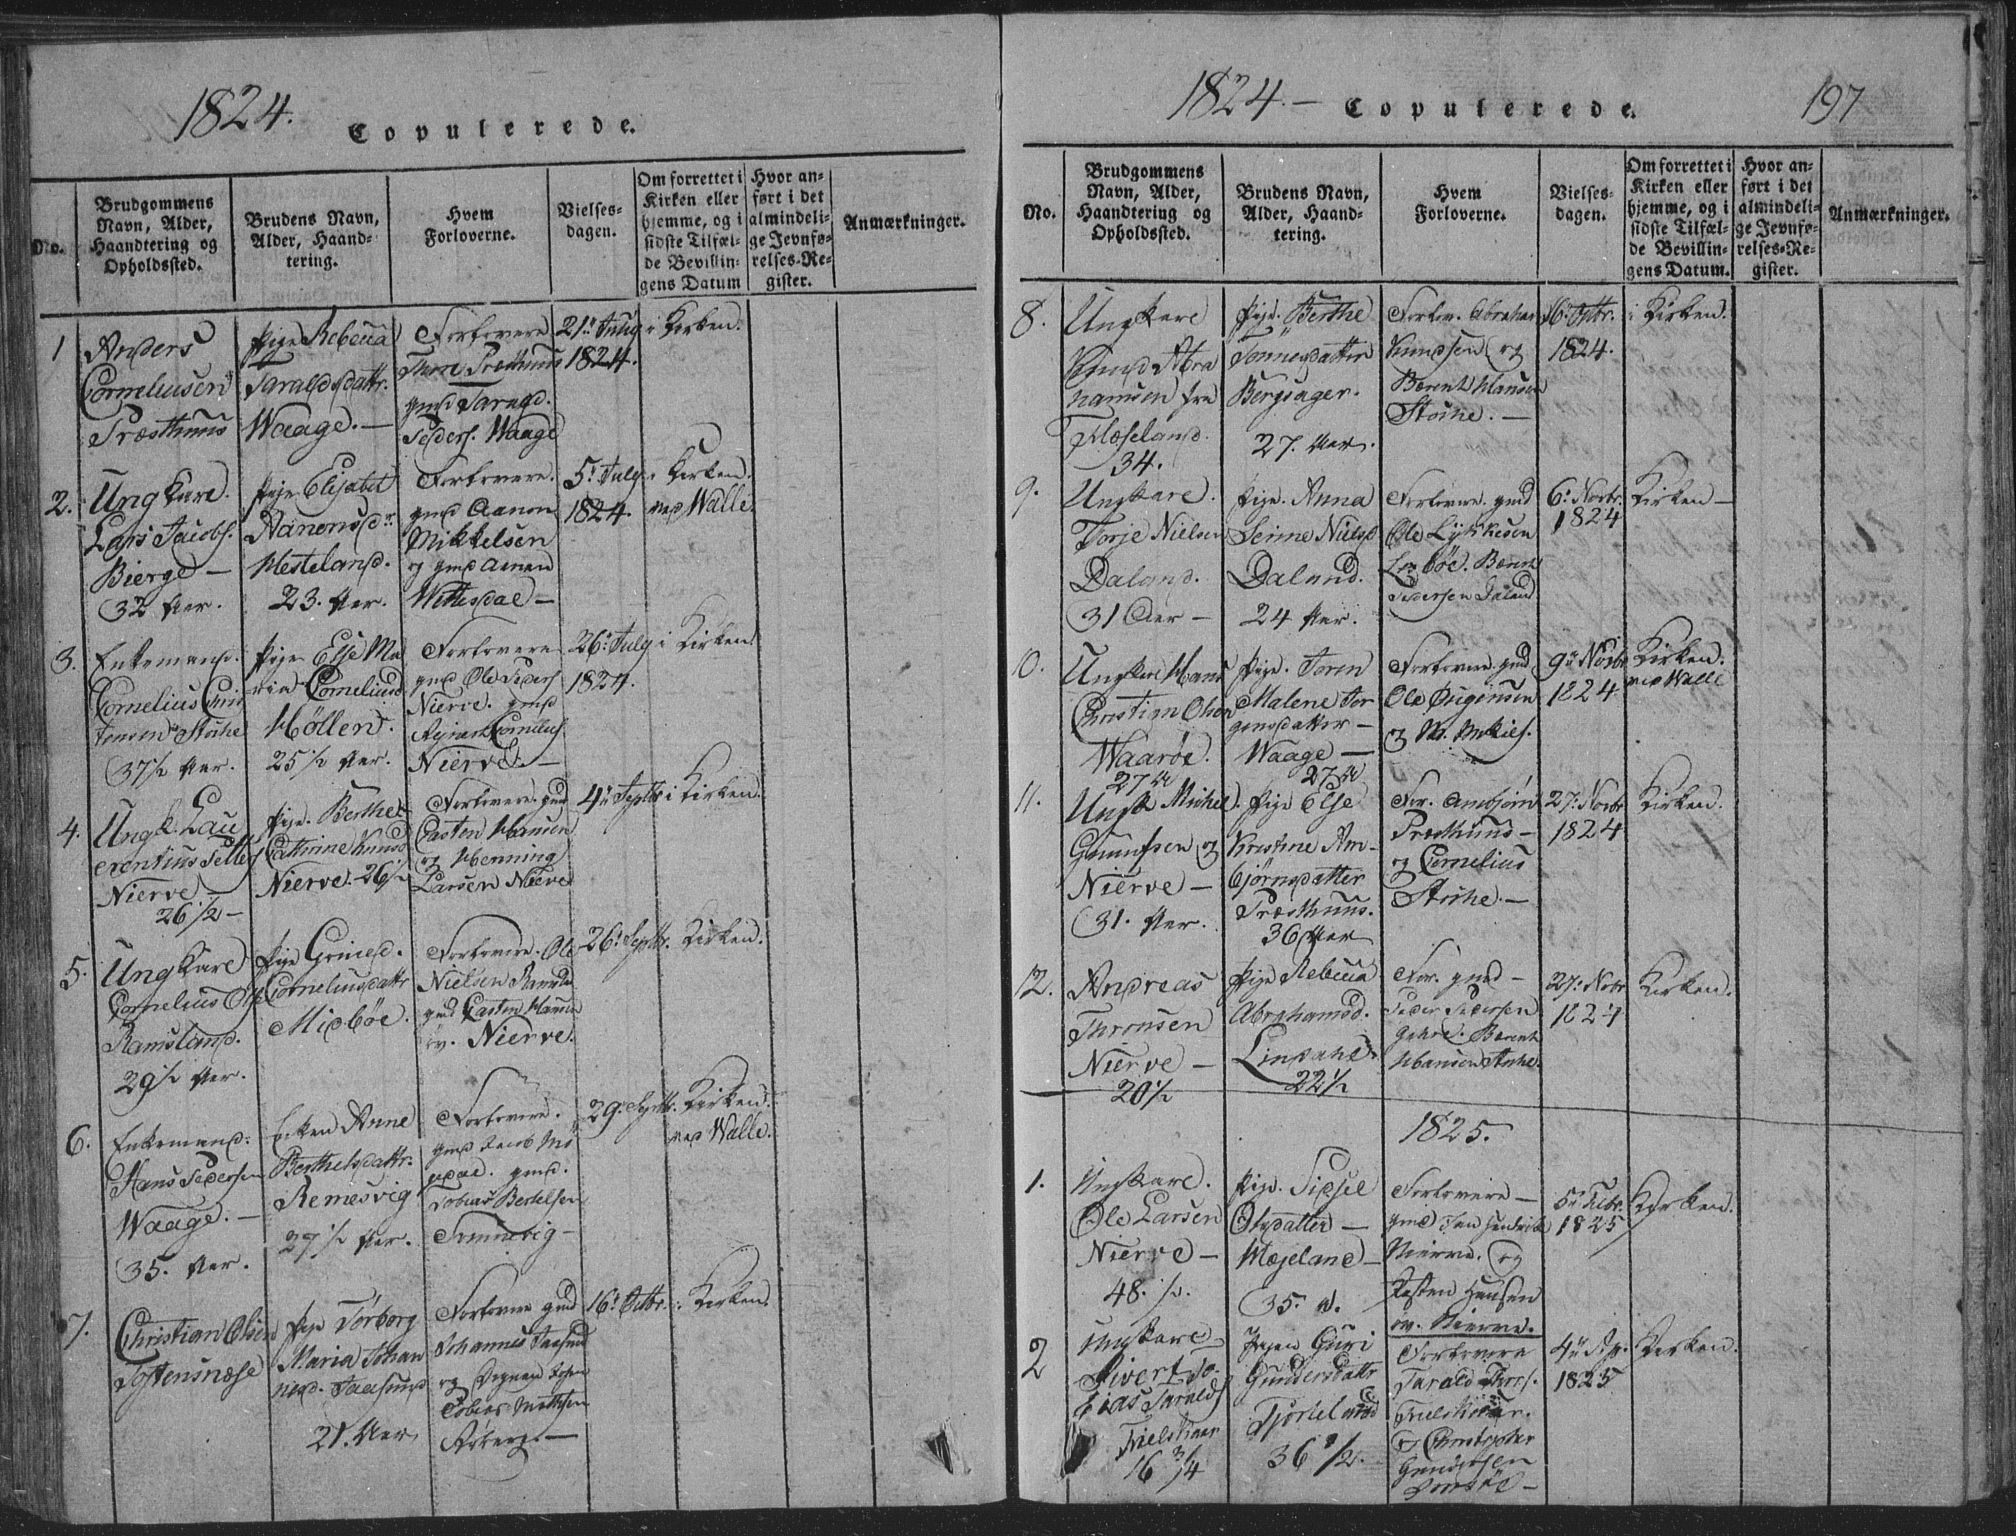 1824.
Copulerede.
No.
Brudgommens
Navn, Alder,
Haandtering og
Opholdssted.
Brudens Navn,
Alder, Haand-
tering.
Hvem
Forloverne.
Vielses-
dagen.
Om forrettet i
Kirken eller
hjemme, og i
sidste Tilfæl-
de Bevillin-
gens Datum
Hvor an-
ført i det
almindeli-
ge Jevnfø-
relses-Re-
gister.
Anmærkninger.
1
Anders
Corneliusen
Præsthuus
Pige Rebecca
Taraldsdattr.
Waage. —
Forlovere
Thore Præsthuus
gmd Tarald
Peders. Waage
21de July
1824.
i Kirken.
2.
Ung Karl.
Lars Jacobs.
Bierge —
32 Aar.
Pige Elisabet
Aanensdr.
Hesteland.
23. Aar.
Forlovere.
gmd Aanon
Mikkelsen
og gmd Aanen
Wittesdal —
5t July
1824.
i Kirken.
ved Walle.
3.
Enkemand.
Cornelius Chris
tensen Stoehe
37½ Aar.
Pige Else Ma
ria Corneliusd
Høllen.
25½ Aar.
Forlovere
gmd Ole Peders
Nierve. gmd
Nierve. —
26t July
1824.
i Kirken.
4.
Ungk. Lau
erentius
Nierve
26½ —
Pige. Berthe
Cathrine Knudsd
Nierve. 26½
Forlovere. gmd
Casten Hansen
og Henning
Larsen Nierve
4de Septbr
i Kirken.
5.
Ung Karl
Cornelius Ols
Ramsland.
29½ Aar.
Pige
Corneliusdattr
Midbøe.
Forlovere. Ole
Nielsen Ramsla
gmd Casten Hansen
øv. Nierve.
26t Septbr.
Kirken.
6.
Enkemand.
Hans Pedersen
Waage. —
35. Aar.
Enken Anne
Berthelsdattr.
Remesvig
27½ Aar.
Forlovere.
gmd
gmd.
Tobias Bertelsen
29t Septbr.
Kirken.
ved Walle.
7.
Christian Olsen
Tostensnæse
Pige Torborg
Maria Johan
nesd. Taasund
21. Aar.
Forlovere gmd
Johannes Taasund
og
Tobias
16t Octbr.
i Kirken.
1824. —
Copulerede.
197
No.
Brudgommens
Navn, Alder,
Haandtering og
Opholdssted.
Brudens Navn,
Alder, Haand-
tering.
Hvem
Forloverne.
Vielses-
dagen.
Om forrettet i
Kirken eller
hjemme, og i
sidste Tilfæl-
de Bevillin-
gens Datum.
Hvor an-
ført i det
almindeli-
ge Jevnfø-
relses-Re-
gister.
Anmærkninger.
8.
Ungkarl
Knud Abra
hamsen fra
Flæseland.
34.
Pige. Berthe
Tønnesdatter
Bergsager.
27. Aar.
Forlov. Abraham
Knudsen og
Bærent Hansen
Stoehe. —
16t Octbr.
1824.
i Kirken.
9.
Ungkarl.
Torje Nielsen
Daland.
31 Aar —
Pige. Anna
Serine Nielsd
Daland.
24 Aar.
Forlovere. gmd
Ole Lykkesen
Bærent
Pedersen Daland
6t Novbr.
1824
Kirken —
10.
Ungkarl Hans
Christian Olsen
Waarøe.
27 Aar
Pige. Toren
Malene Tor
gensdatter —
Waage —
27 Aar
Forlovere gmd
Ole
og
9de Novbr
1824
Kirken.
ved Walle
11.
Ungk Michel
og
Nierve —
31. Aar.
Pige Else
Kristine Am-
bjørnsdatter
Præsthuus.
36 Aar
For. Ambjørn
Præsthuus —
og Cornelius
Stoehe. —
27t Novbr
1824
Kirken.
12.
Andreas
Thronsen
Nierve —
20½
Pige Rebecca
Abrahamsd.
Lindahl.
22½
For. gmd —
Peder Pedersen
Bærent
Hansen Stoehe.
27t Novbr
1824
Kirken.
1825.
1.
Ungkarl.
Ole Larsen
Nierve —
48. ½.
Pige. Sidsel
Olsdatter —
Mæseland —
35. A.
Forlovere —
gmd Jan Hendrik
Nierve. og
Kasten Hansen
øv. Nierve.
5t Febr.
1825
Kirken.
2
Ungkarl
Sivert To-
bias Taralds
Trielskaar
16 3/4
Pigen Guri
Gundersdattr
36 ½.
Forlovere
Tarald Thors.
Trielskaar.
og Christopher
Gundersen
4de Ap.
1825
Kirken.